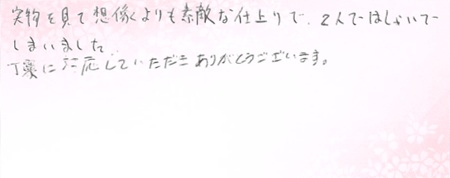 実物を見て想像よりも素敵な仕上りで、2人ではしゃいで
しまいました。
丁寧に対応していただきありがとうございます。